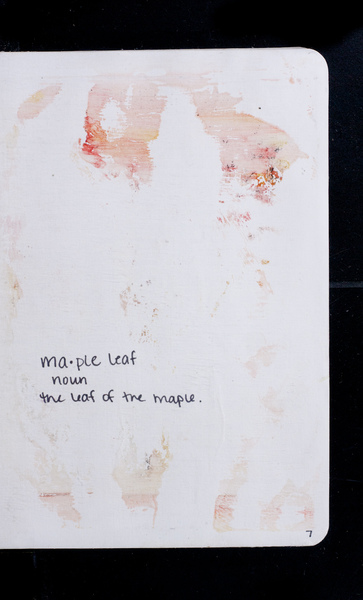 ma•ple leaf
noun
the leaf of the maple.
7